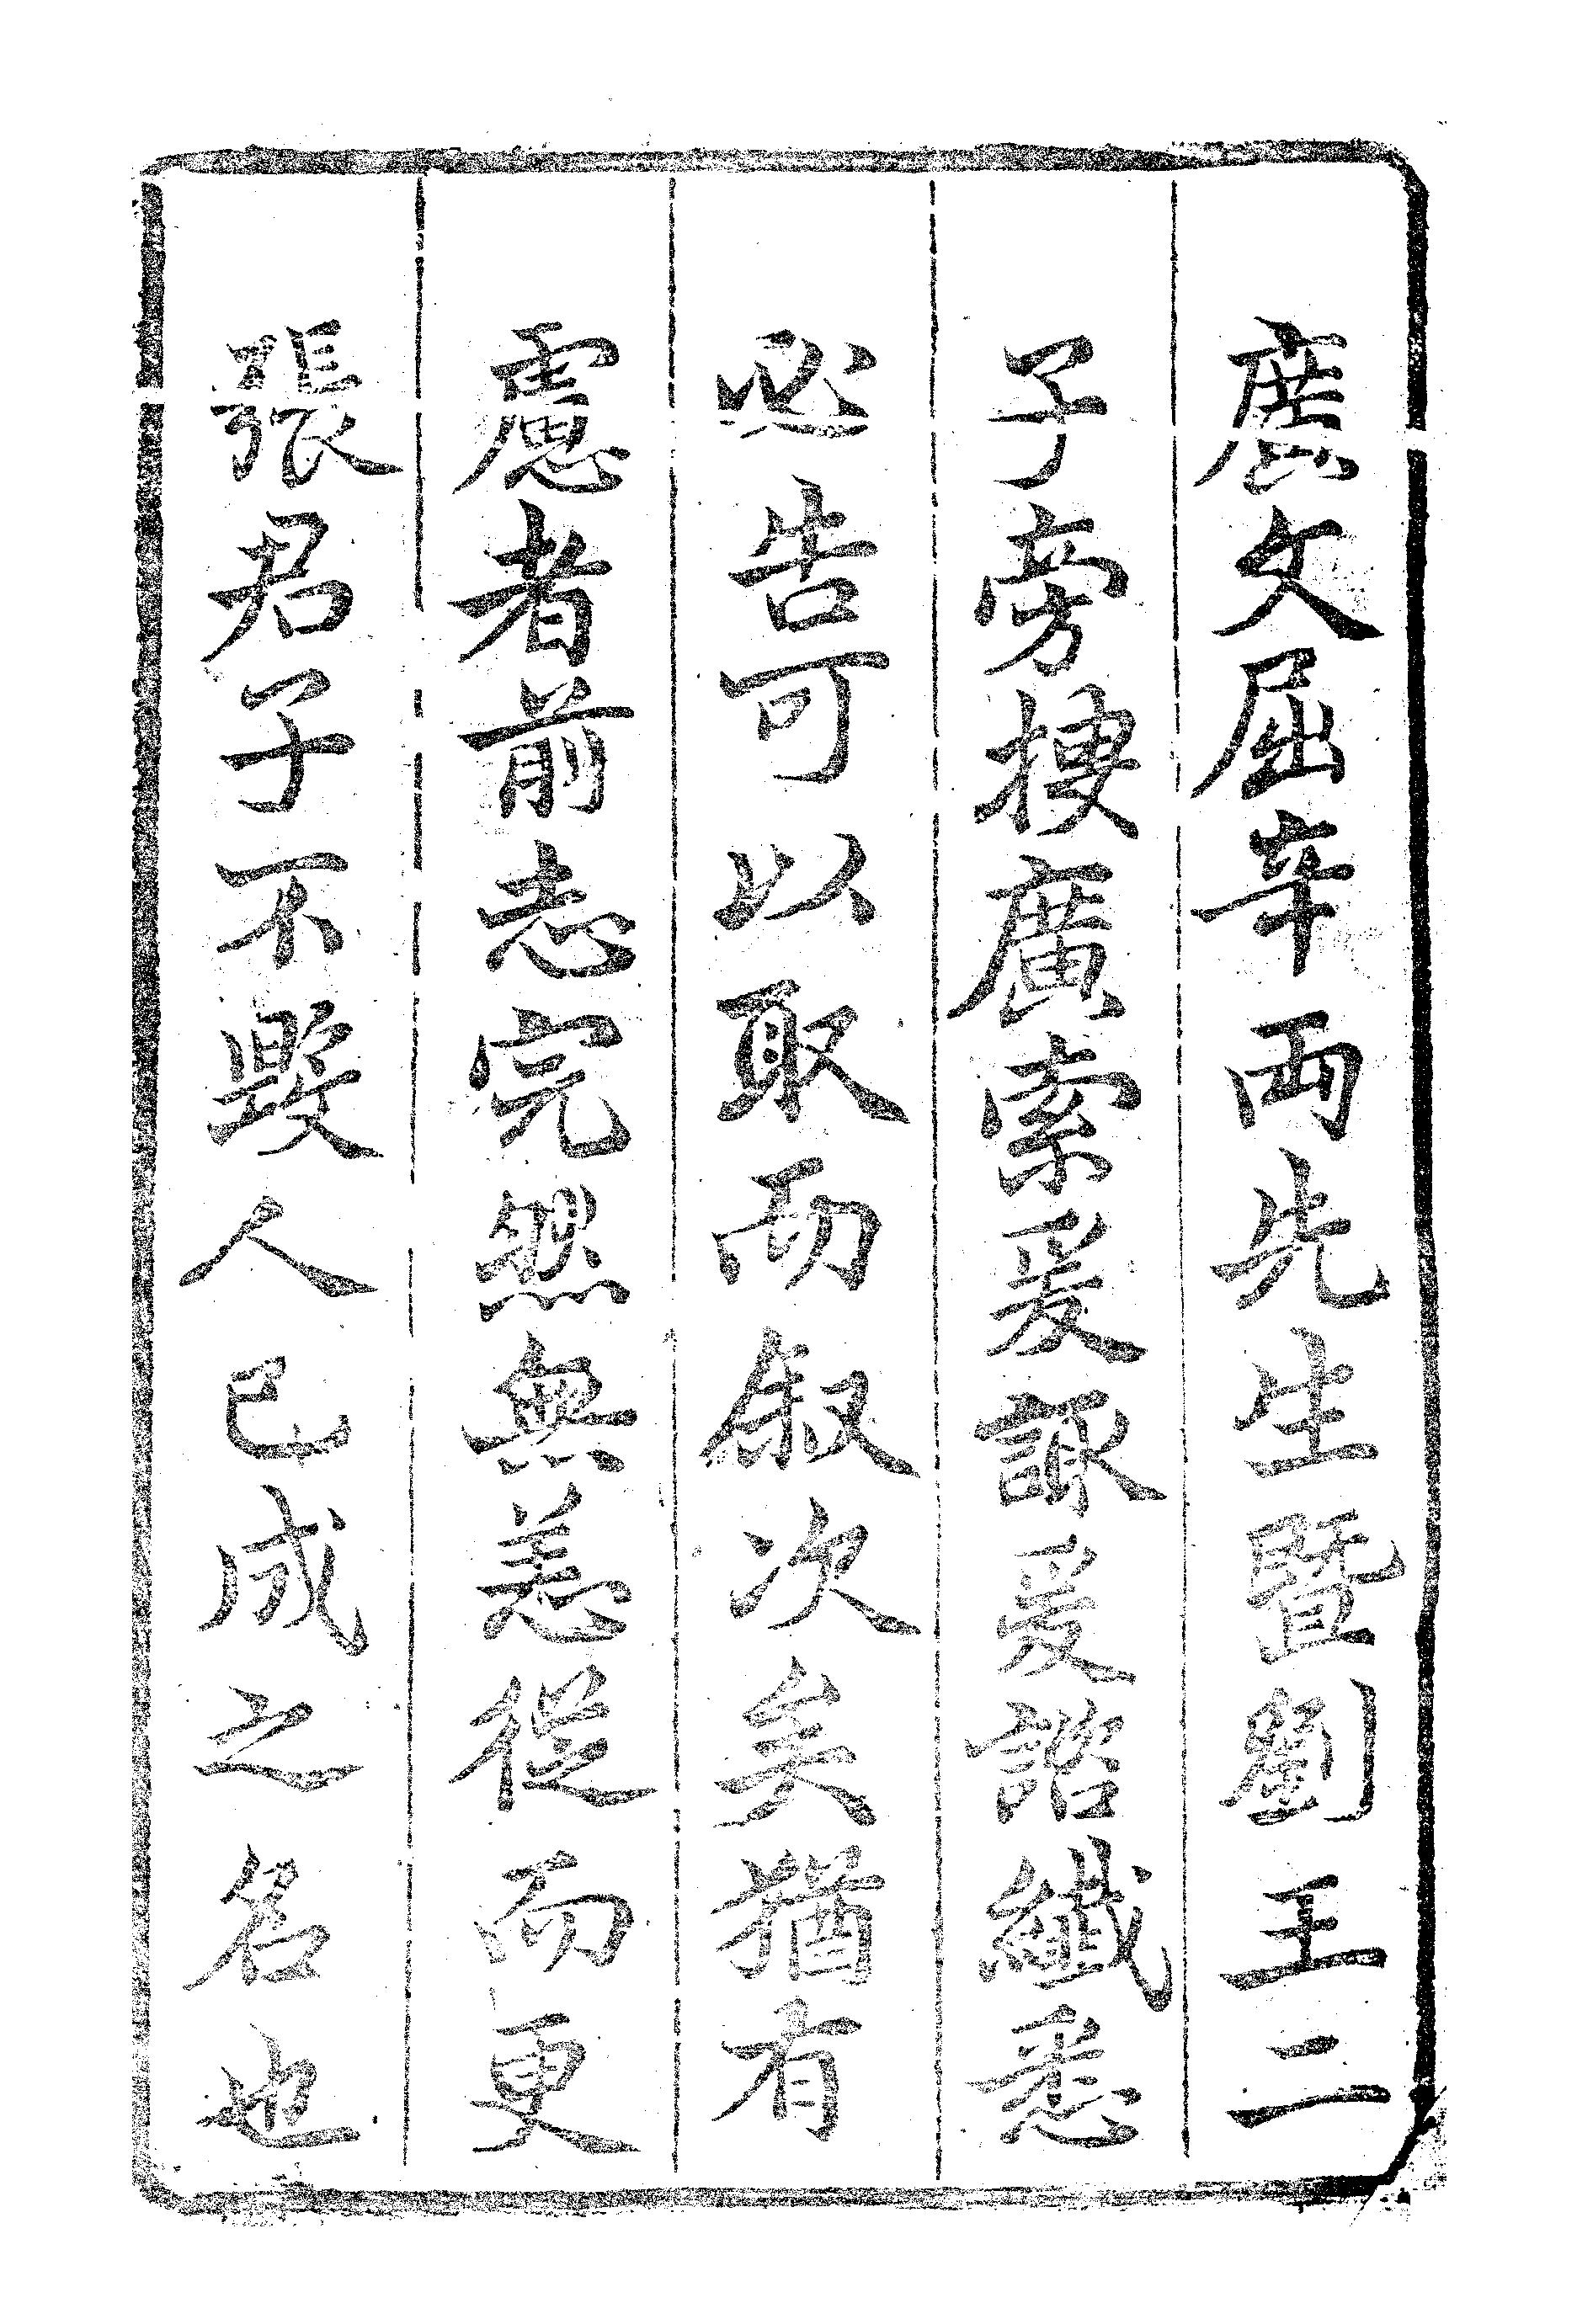 廣文屈辛両先生暨劉王二
子旁搜廣索爰諏爰諮纖悉
必告可以取而叙次矣猶有
慮者前志完然無恙從而更
張君子不毀人已成之名也